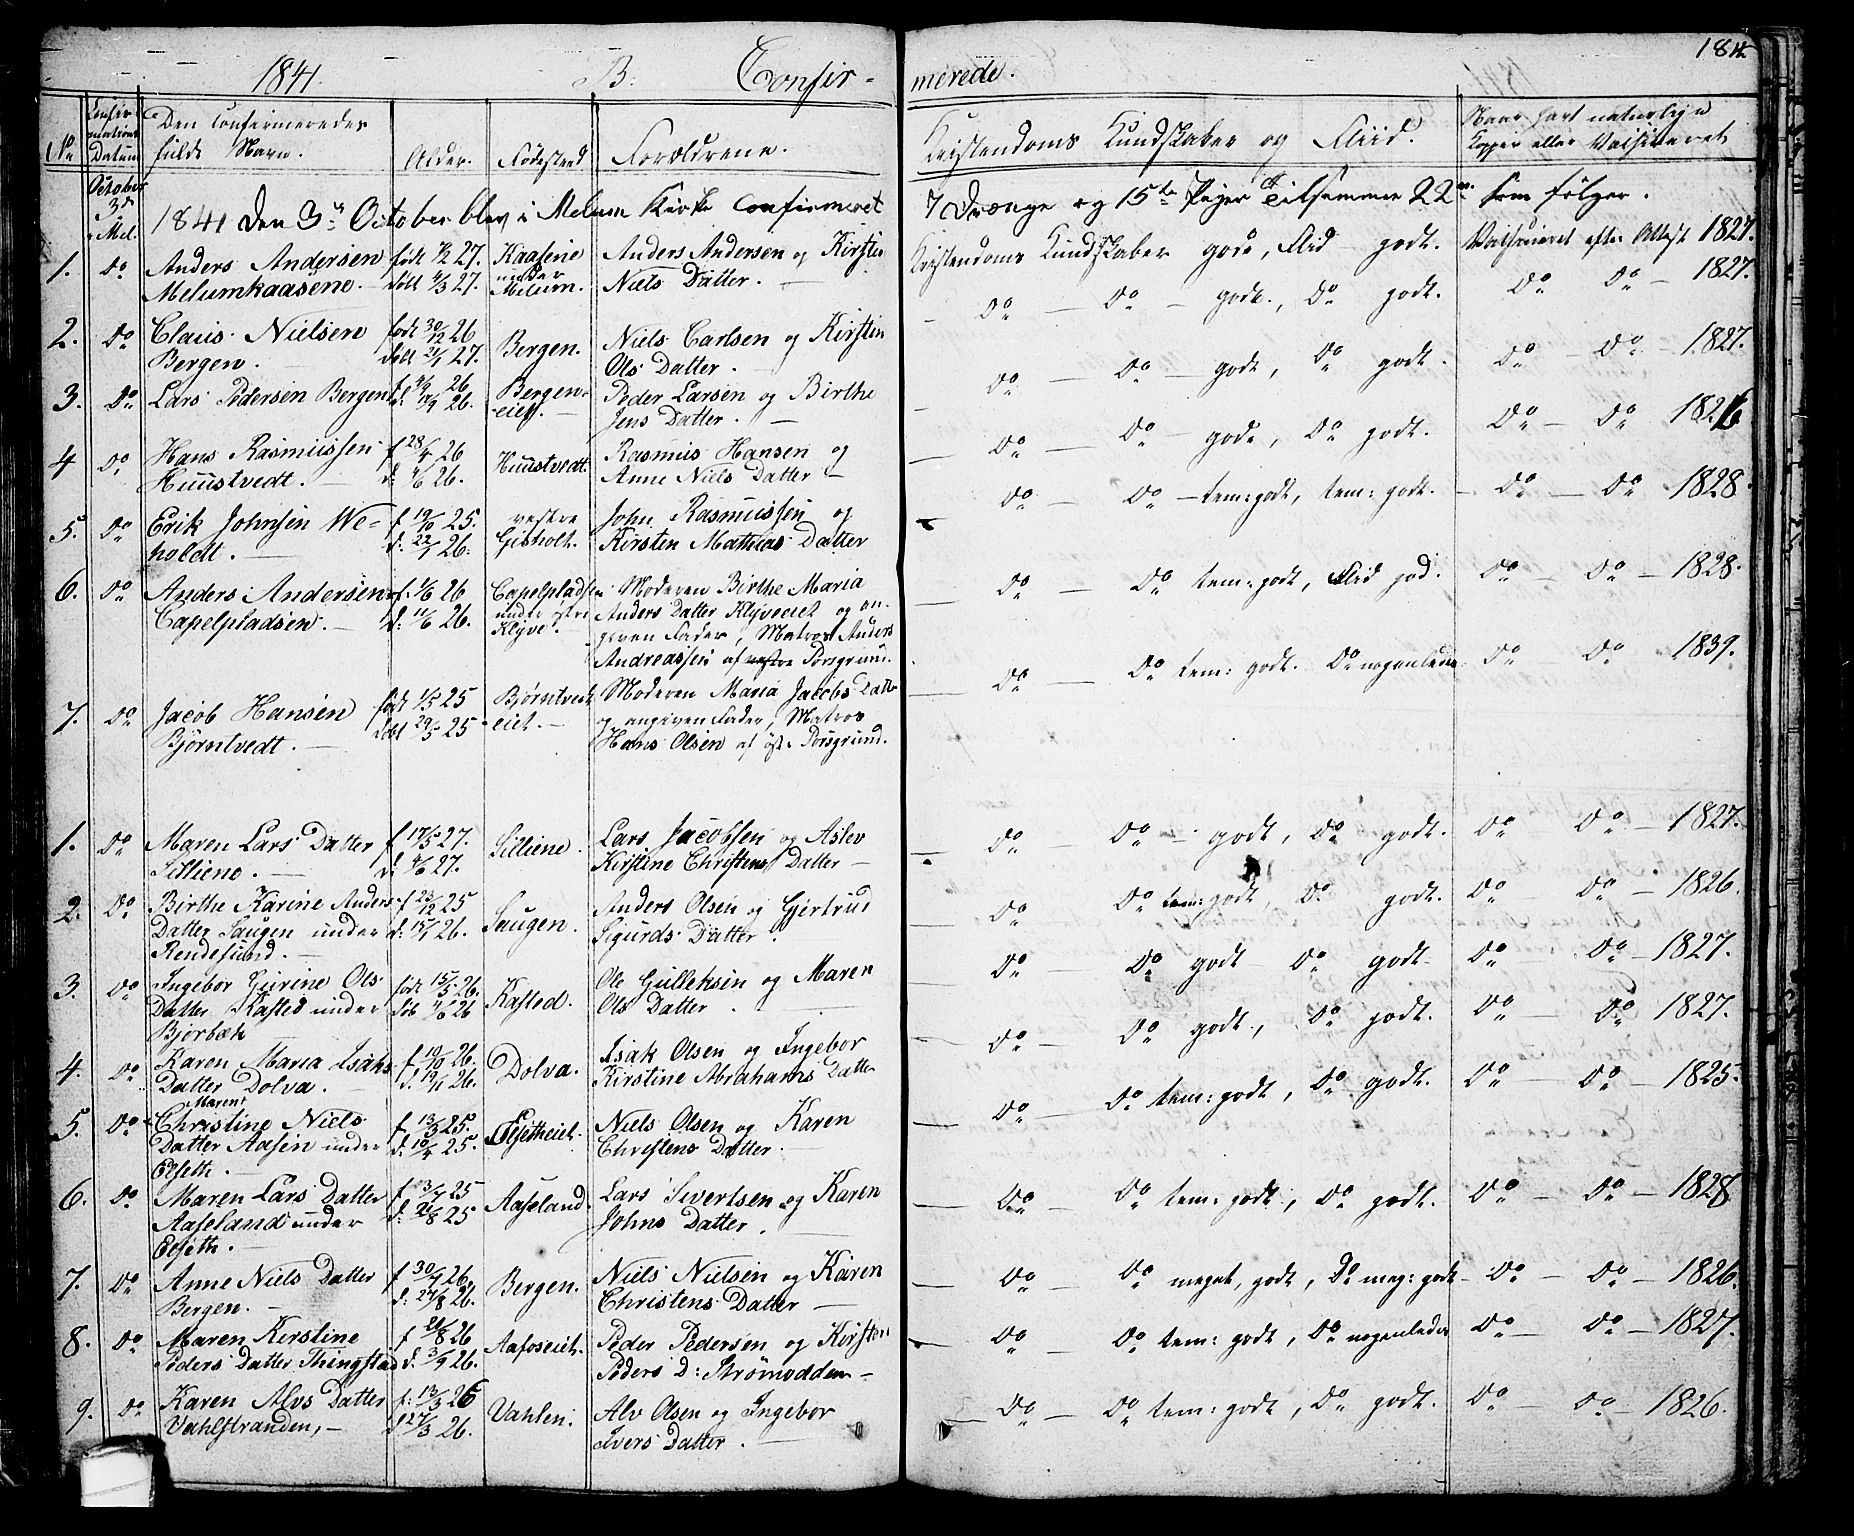 1841. B. Confir-
No Confirmations Datum Den Confirmeredes fulde Navn. Alder. Fødested Forældrene.
October 3d Mel. 1841 den 3die October blev i Melum Kirke Confirmeret
1. do Anders Andersen født 27. Kaasene Anders Andersen og Kirsten
Melumkaasene. døbt 27. under Melum. Niels Datter.
2. do Claus Nielsen født 30/12 26 Bergen. Niels Carlsen og Kirstin
Bergen. døbt 21/1 27. Ols Datter.
3. do Lars Pedersen Bergen f. 26 Bergen- Peder Larsen og Birthe
d: 26. eiet. Jens Datter.
4 do Hans Rasmussen f 28/4 26 Huustvedt. Rasmus Hansen og
Huustvedt. d: 26. Anne Niels Datter
5. do Erik Johnsen We- f 19/10 25. vestre John Rasmussen og
holdt. d: 22/1 26. Gisholt. Kirsten Mathias Datter
6. do Anders Andersen f. 26 Capelpladsen Moderen Birthe Maria
Capelpladsen. d: 11/6 26. under østre Anders Datter Klyveeiet og an-
Klyve. given Fader, Matros Anders
Andreassen af vestre Porsgrund.
7. do Jacob Hansen født 25 Bjørntvedt Moderen Maria Jacobs Datter
Bjørntvedt. døbt 29/5 25 eiet. og angiven Fader, Matros
Hans Olsen af øst. Porsgrund.
1. do Maren Lars Datter f 17/5 27. Silliene. Lars Jacobsen og Aslev
Silliene. d. 27. Kirstine Christens Datter
2. do Birthe Karine Anders f 23/12 25 Saugen. Anders Olsen og Gjertrud
Datter Saugen under d: 15/1 26. Sigurds Datter.
Rendesund.
3. do Ingebor Gurine Ols født 15/5 26. Kasted. Ole Gulleksen og Maren
Datter Kasted under døb 26 Ols Datter.
Bjorbæk
4. do Karen Maria Isaks f 19/10 26. Dolva. Isak Olsen og Ingebor
Datter Dolva. d. 19/11 26. Kirstine Abrahams Datter
Maren
5. do Christine Niels f. 13/3 25. Elsetheiet. Niels Olsen og Karen
Datter Aasen under d. 10/4 25. Christens Datter.
Elseth.
6. do Maren Lars Datter f 13/7 25 Aaseland. Lars Sivertsen og Karen
Aaseland under d: 21/8 25 Johns Datter.
Elseth.
7. do Anne Niels Datter f 30/7 26. Bergen. Niels Nielsen og Karen
Bergen. d: 27/8 26. Christens Datter
8. do Maren Kirstine f 20/8 26 Aafoseiet. Peder Pedersen og Kirsten
Peders Datter Thingstad d. 3/9 26. Peders D: Strømodden
9. do Karen Alvs Datter f: 13/3 26 Vahlen. Alv Olsen og Ingebor
Vahlstranden, d 27/3 26. Ivers Datter.
184
merede.
Kristendoms Kundskaber og Fliid. Naar havt naturlige Kopper eller Vaksineret
7 Drenge og 15ten Piger tilsammen 22 som følger.
Kristendoms Kundskaber gode, Flid godt. Vaksineret efter Attest 1827.
do do gode., do godt. do do 1827.
do do gode, do godt. do do 1827.
do do gode, do godt. do do 1826
do do tem: godt, tem: godt. do do 1828.
do do tem: godt, Flid god. do do 1828.
do do tem: godt. do nogenlede do do 1839.
do do godt, do godt. do do 1827.
do do tem: godt, do godt. do do 1826.
do do godt do godt do do 1827.
do do godt, do godt. do do 1827.
do do tem: godt, do godt. do do 1825.
do do tem: godt, do godt. do do 1828
do do meget godt, do meg: godt do do 1826.
do do tem: godt, do nogenlede do do 1827.
do do tem: godt, do godt. do do 1826.